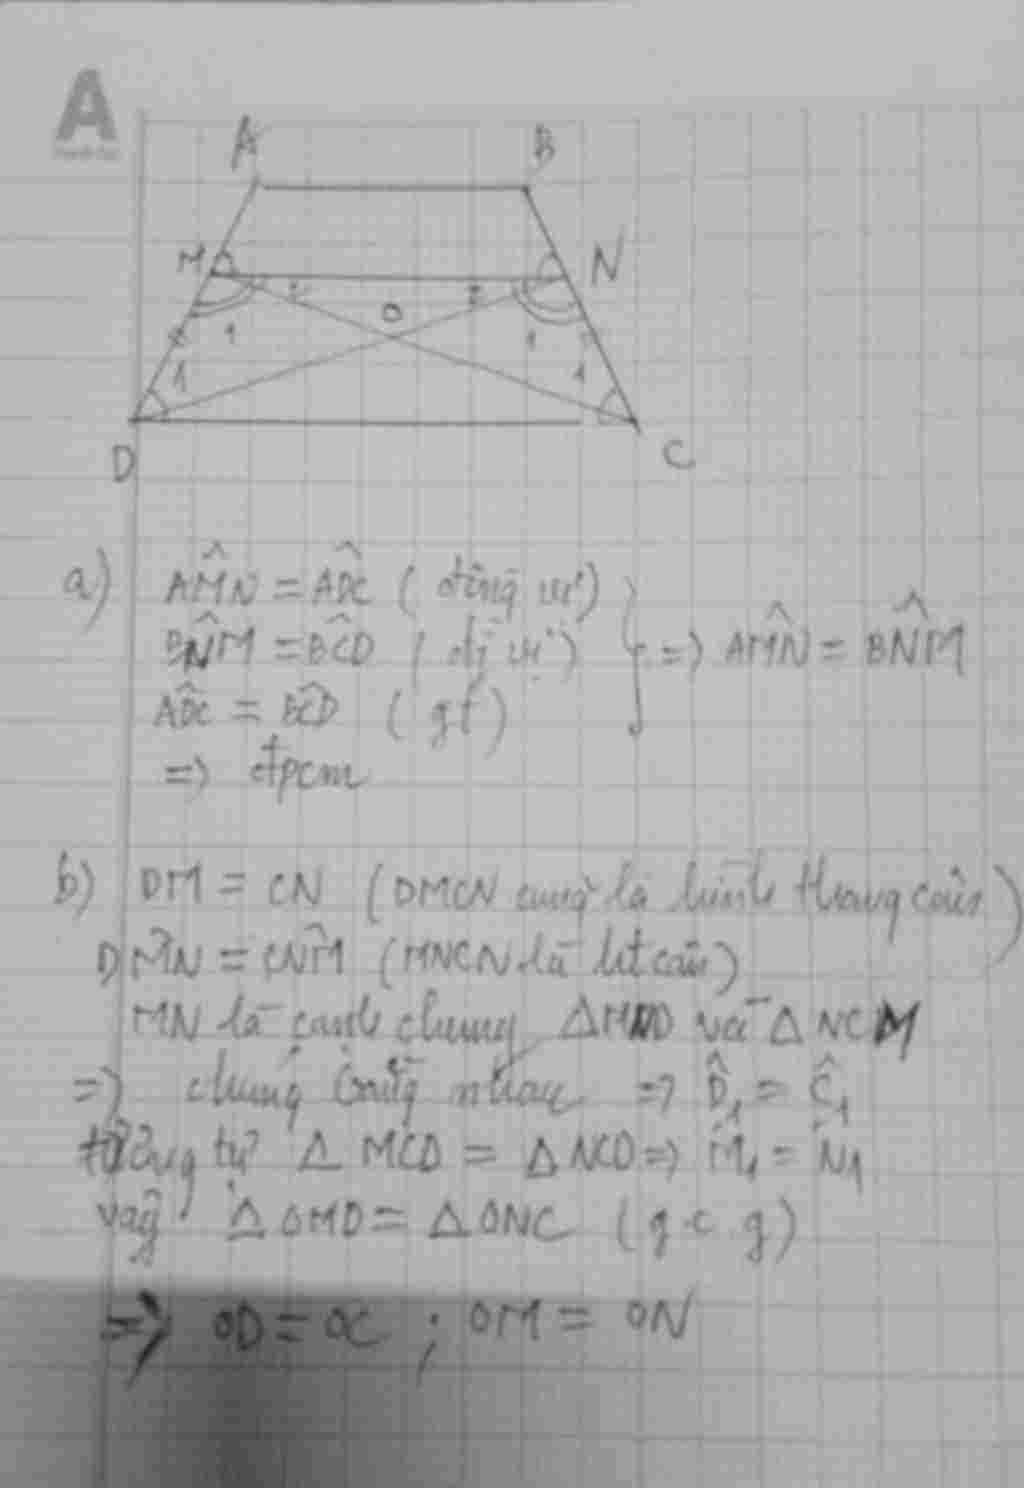 A
A B
M N
2 O 2
1 1
1 1
D C
a) AM̂N = AD̂C ( đồng vị )
BN̂M = BĈD ( đg vị ) } => AM̂N = BN̂M
AD̂C = BĈD ( gt )
=> đpcm
b) DM = CN (DMCN cũng là hình thang cân)
DM̂N = CN̂M (MNCN là ht cân)
MN là cạnh chung ΔMND và Δ NCM
=> chúng bằng nhau => D̂₁ = Ĉ₁
tương tự Δ MCD = Δ NCD => M̂₁ = N̂₁
vậy Δ OMD = Δ ONC ( g c g )
=> OD = OC ; OM = ON